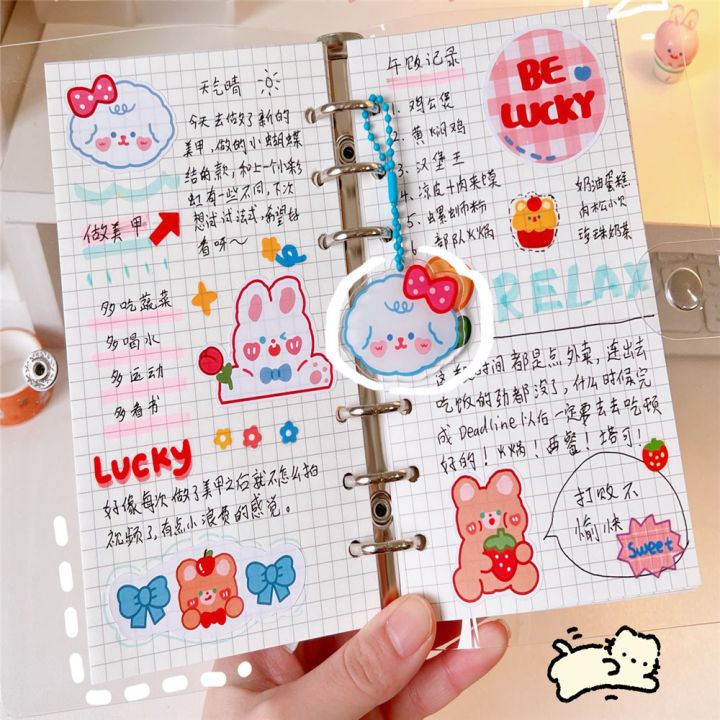 天气晴
今天去做了新的
美甲,做的小蝴蝶
结的款,和上个小彩
虹有一些不同,下次
想试试法式,希望好
看哦~
做美甲
多吃蔬菜
多喝水
多运动
多看书
LUCKY
好像每次做了美甲之后就不怎么拍
视频了,有点小浪费的感觉。
午饭记录
1. 鸡公煲
2. 黄焖鸡
3. 汉堡王
4. 凉皮+肉夹馍
5. 螺蛳粉
部队火锅
BE
LUCKY
奶油蛋糕
肉松小贝
珍珠奶茶
RELAX
时间都是点外卖,连出去
吃饭的劲都没了,什么时候完
成Deadline以后一定要去吃顿
好的!火锅!西餐!塔可!
打败不
愉快
Sweet